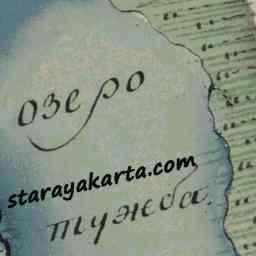 озеро
starayakarta.com
тужба.